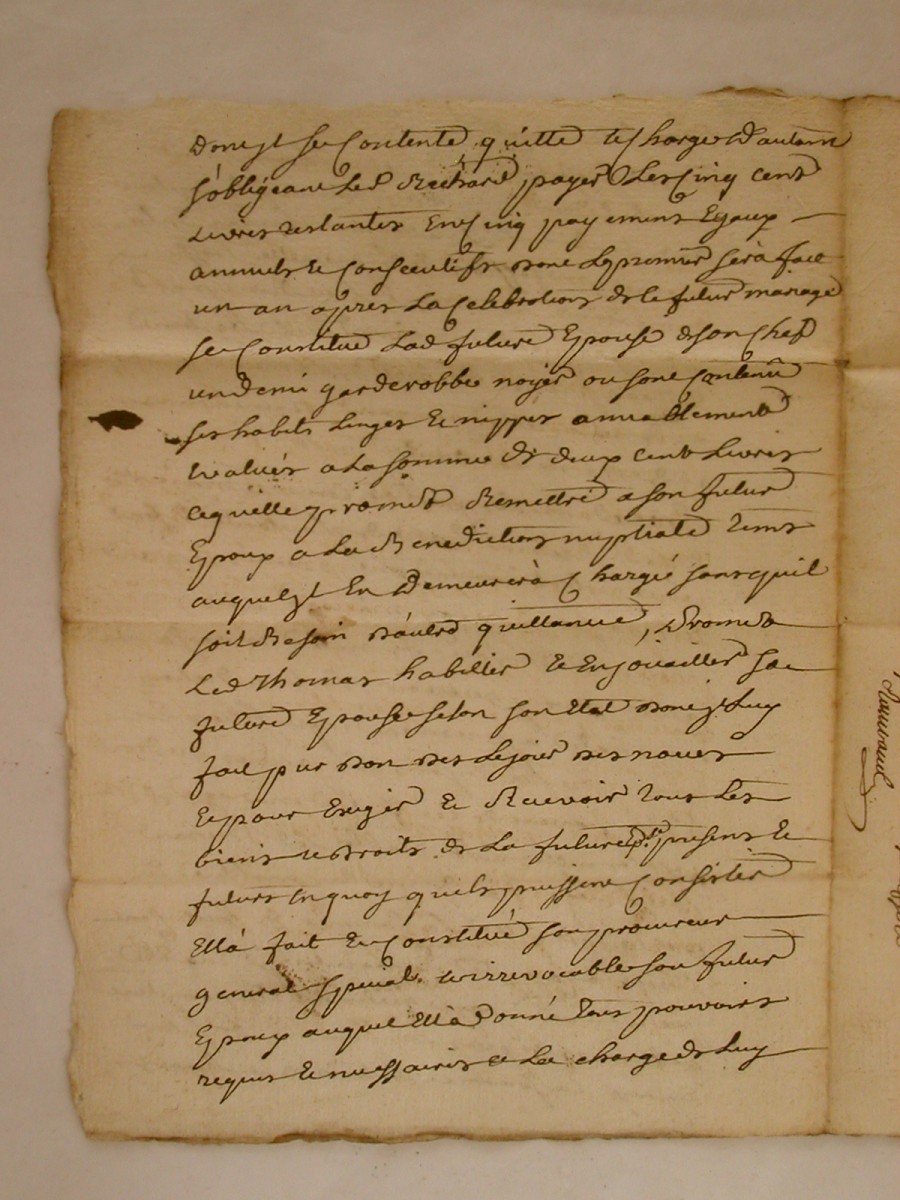 Dont jl se Contente quitte et Charge d'autant
s'obligeant Led Richard payer Les Cinq cent
Livres restantes En Cinq payements Egaux
annuels et Consecutifs dont Le premier sera fait
un an apres La Celebration de le futur mariage
se Constitue Lad future Epouse de son Chef
un demi garderobbe noyer ou sont Contenu
ses habits Linges et nippes amiablement
Evalués a La somme de deux cent Livres
cequelle promet Remettre a son futur
Epoux a La Benediction nuptiale tems
auquel jl En Demeurera Chargé sans quil
soit Besoin d'autre quittance, Promet
Led Thomas habiller et Enjouailler sa
future Epouse selon son Etat dont jl Luy
fait pur don des Lejour des noces
Et pour Exiger et Recevoir tous Les
biens et droits de La future Epse presens et
futurs En quoy quils puissent Consister
Ell'a fait et Constitué son procureur
general special et irrevocable son futur
Epoux auquel Ell'a Donné tous pouvoirs
requis et necessaires a La charge de Luy
Raimbaud